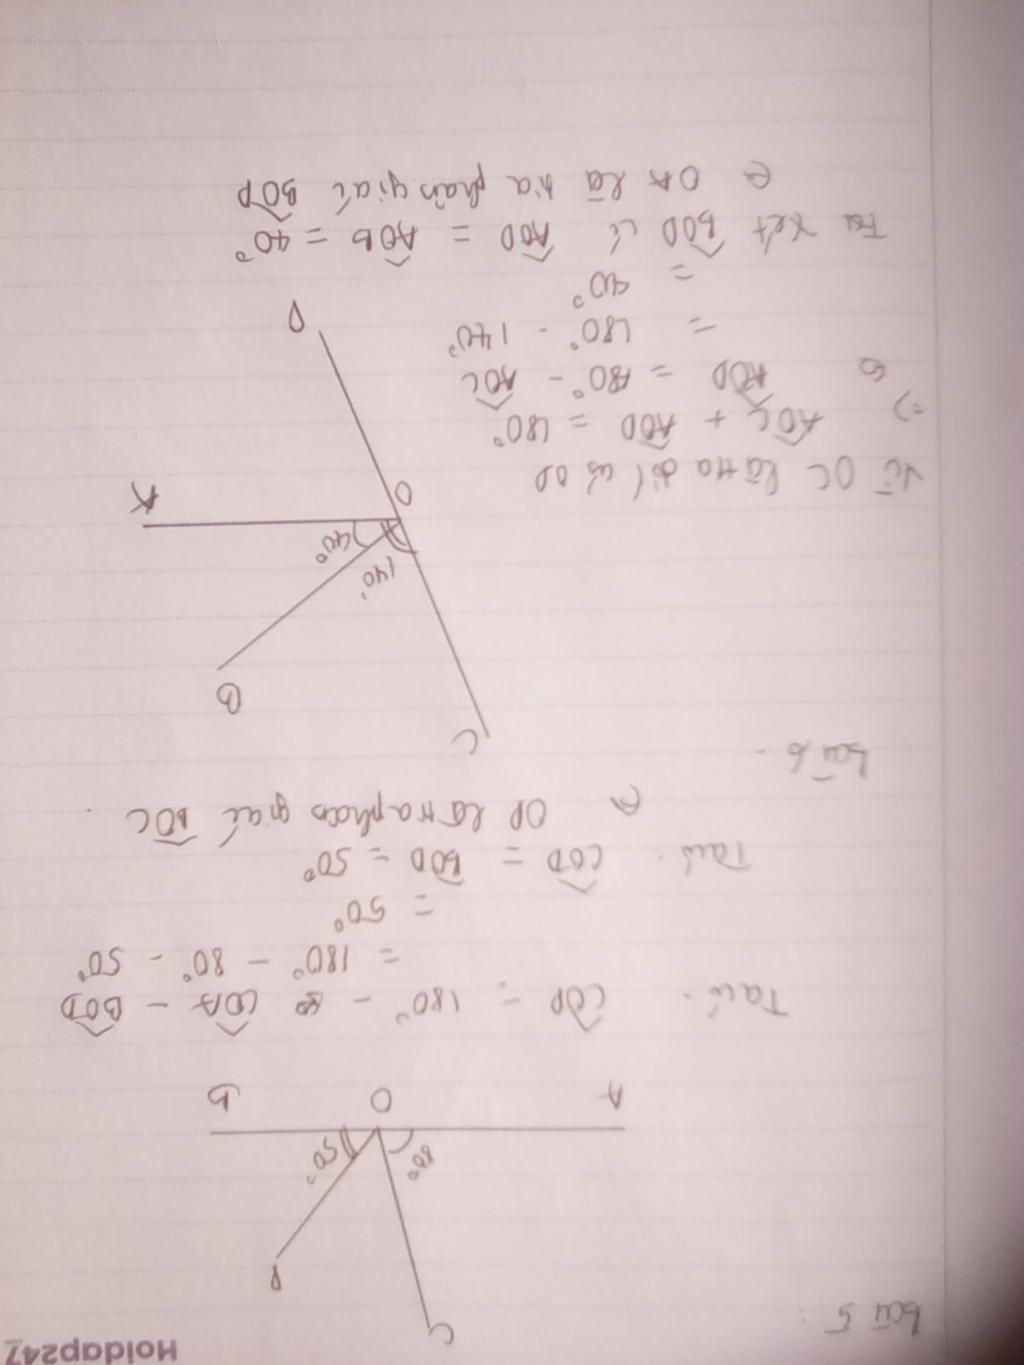 Hoidap247
bài 5:
C
D
80°
50°
A
O
B
Ta có: COD = 180° - COA - BOD
= 180° - 80° - 50°
= 50°
Ta có: COD = BOD = 50°
OD là tia phân giác BOC.
bài 6.
C
B
140°
40°
O
A
D
Vì OC là tia đối của OD
=> AOC + AOD = 180°
AOD = 180° - AOC
= 180° - 140°
= 40°
Ta xét BOD có AOD = AOB = 40°
OA là tia phân giác BOD